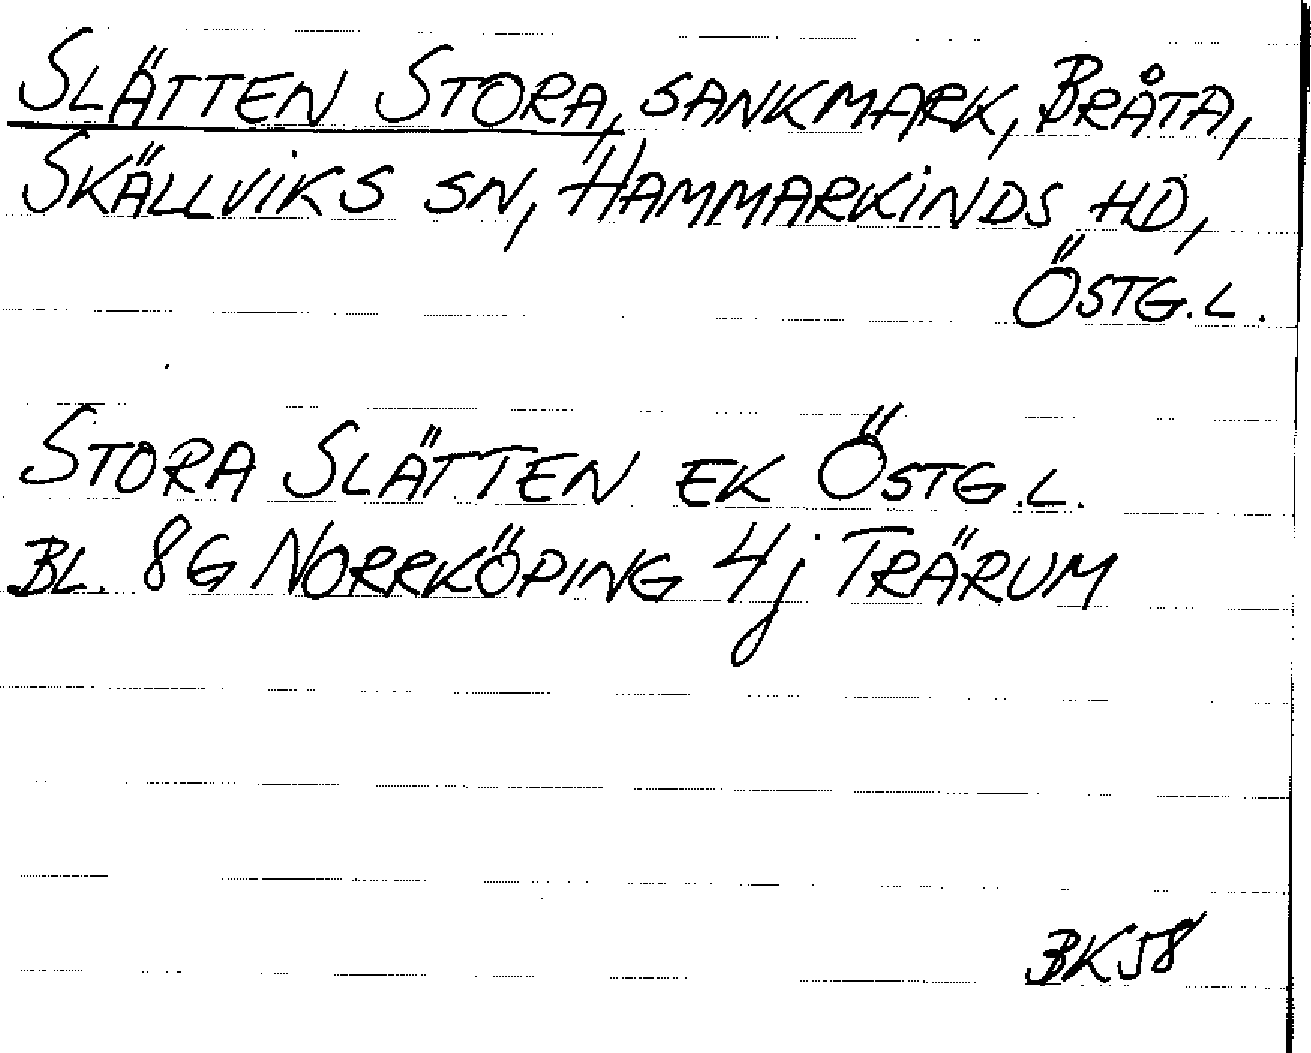 SLÄTTEN STORA, SANKMARK, BRÅTA,
SKÄLLVIKS SN, HAMMARKINDS HD,
ÖSTG.L.
STORA SLÄTTEN EK ÖSTG.L.
BL. 8G NORRKÖPING 4j TRÄRUM
BK58